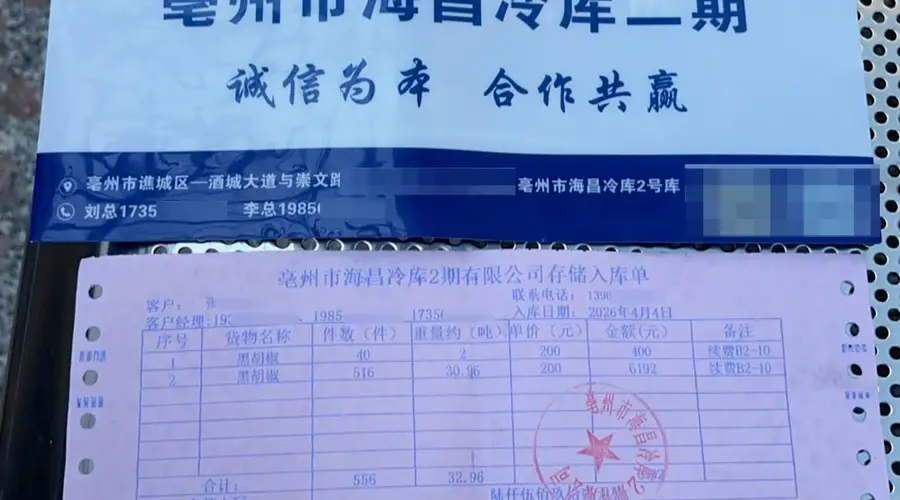 亳州市海昌冷库二期
诚信为本 合作共赢
亳州市谯城区—酒城大道与崇文路 亳州市海昌冷库2号库
刘总1735 李总1985
亳州市海昌冷库2期有限公司存储入库单
客户: 张 联系电话: 139
客户经理:19 1985 1735 入库日期: 2026年4月4日
序号 货物名称 件数(件) 重量约(吨) 单价(元) 金额(元) 备注
1 黑胡椒 40 2 200 400 续费B2-10
2 黑胡椒 516 30.96 200 6192 续费B2-10
合计: 556 32.96
陆仟伍佰玖
亳州市海昌冷库2